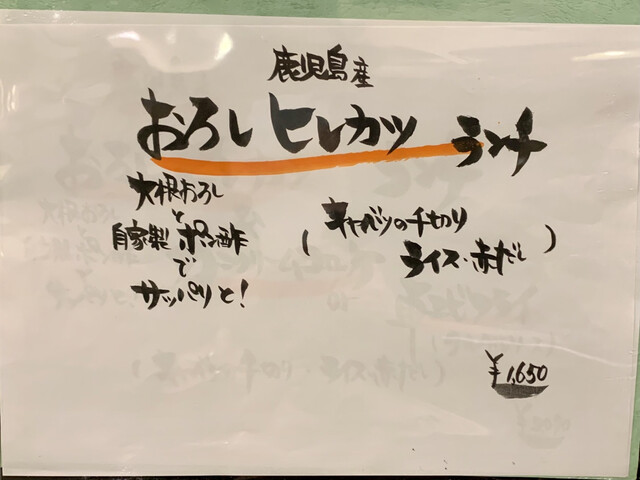 鹿児島産
おろしヒレカツ ランチ
大根おろし
と
自家製 ポン酢
で
サッパリと!
(キャベツの千切り
ライス・赤だし)
¥1,650